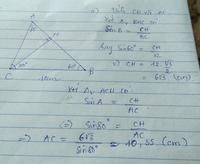 a) Tính CH và AC
Xét Δ BHC có
Sin B = CH/BC
hay Sin 60° = CH/12
=> CH = 12.√3/2
= 6√3 (cm)
Xét Δ ACH có
Sin A = CH/AC
(=) Sin 80° = CH/AC
=> AC = 6√3/Sin 80° ≈ 10,55 (cm)
A
H
C
60°
B